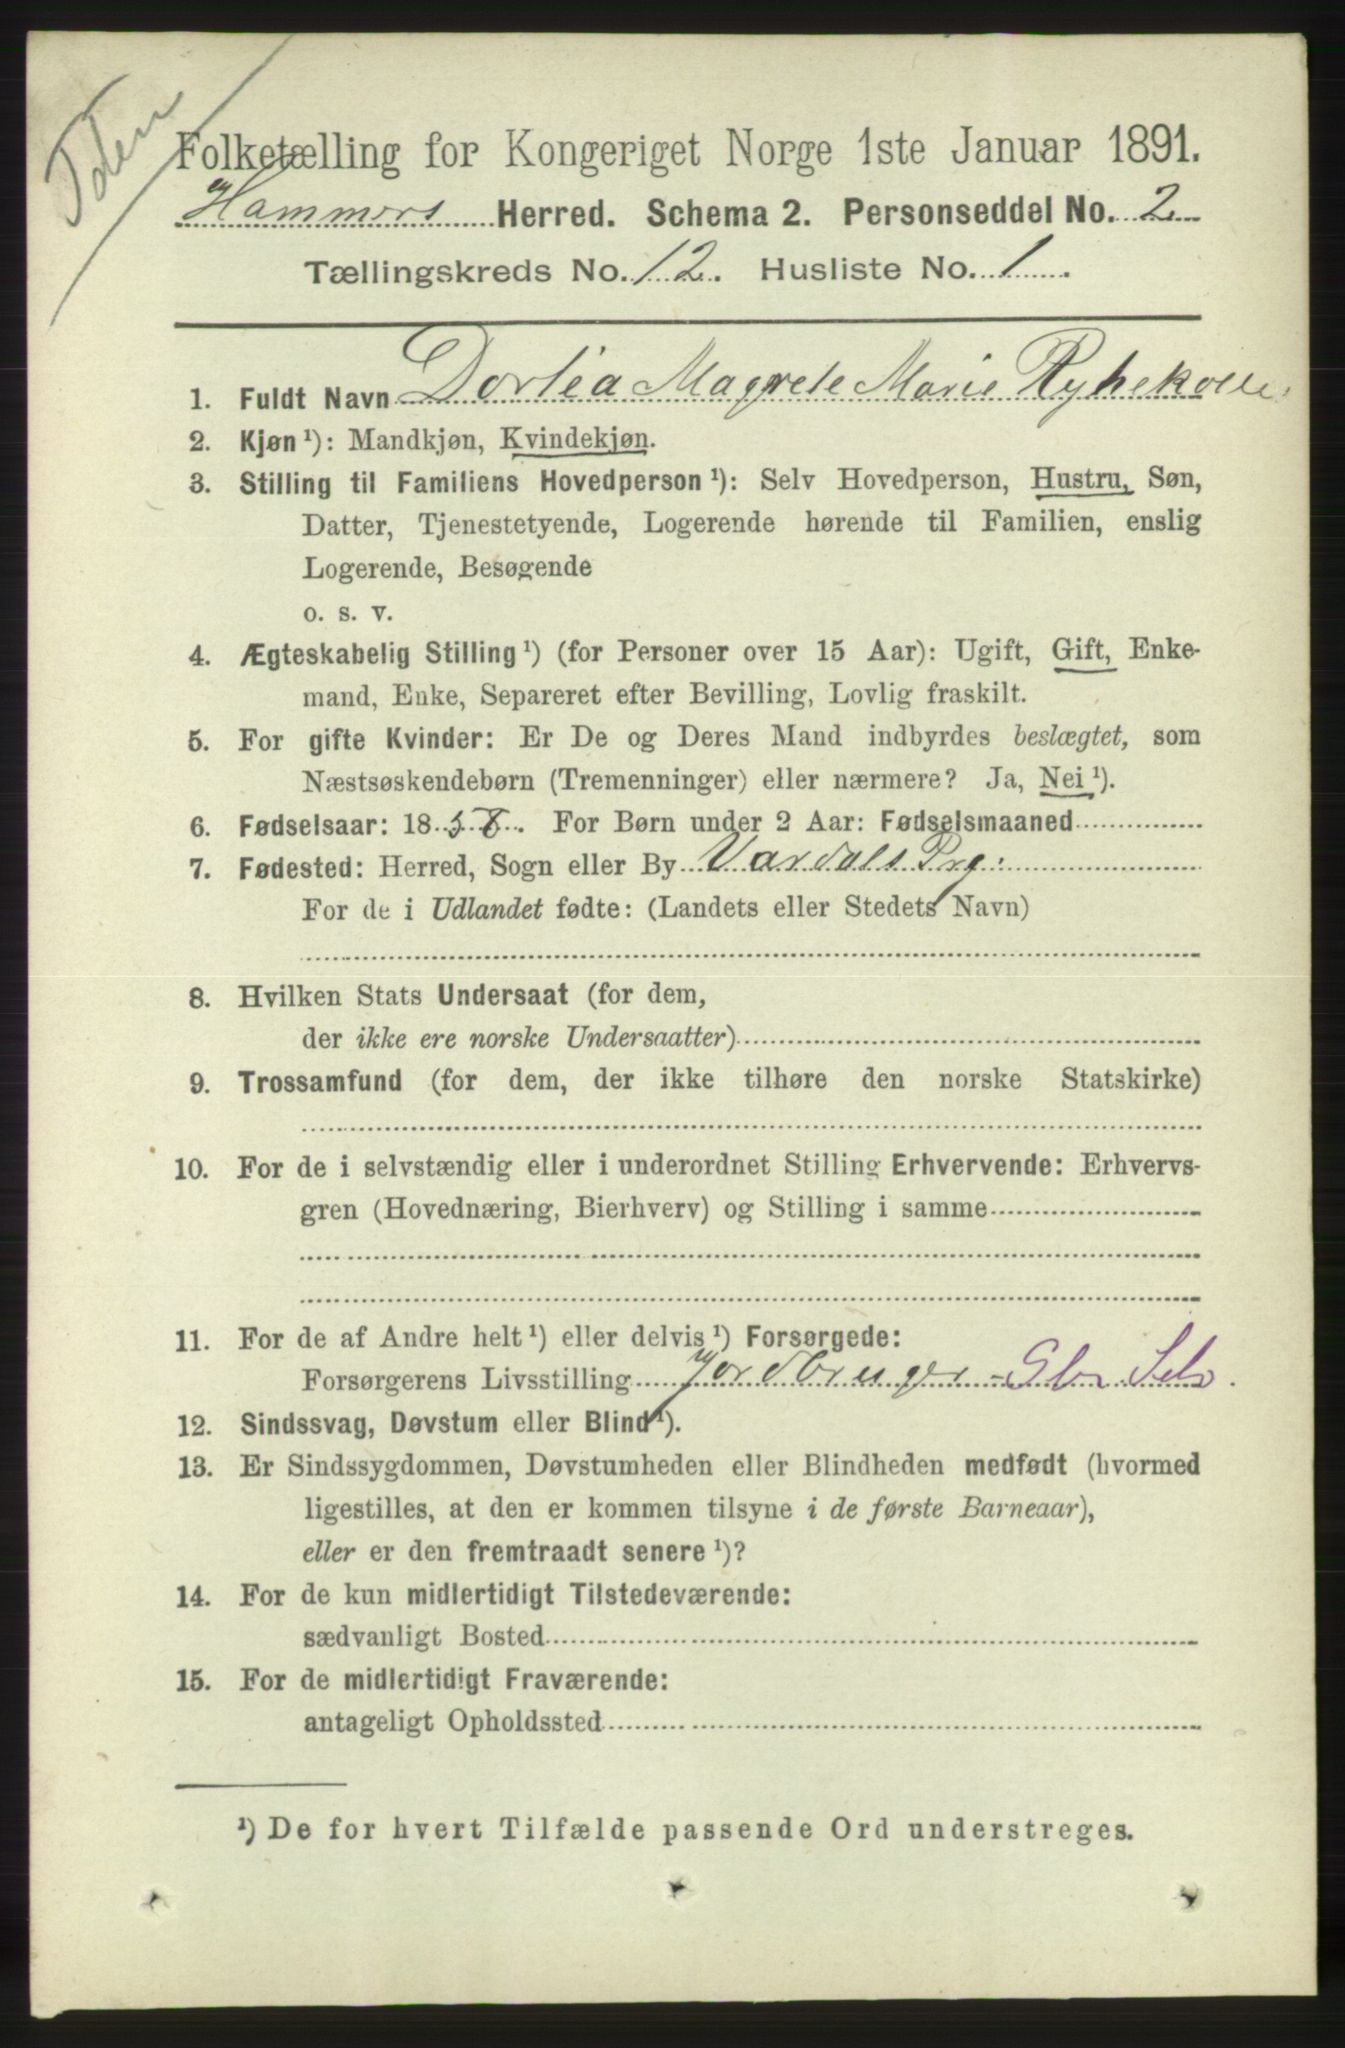 Folketælling for Kongeriget Norge 1ste Januar 1891.
Hammers Herred. Schema 2. Personseddel No. 2
Tællingskreds No. 12. Husliste No. 1.
1. Fuldt Navn Dortea Magrete Marie
2. Kjøn ¹): Mandkjøn, Kvindekjøn.
3. Stilling til Familiens Hovedperson ¹): Selv Hovedperson, Hustru, Søn,
Datter, Tjenestetyende, Logerende hørende til Familien, enslig
Logerende, Besøgende
o. s. v.
4. Ægteskabelig Stilling ¹) (for Personer over 15 Aar): Ugift, Gift, Enke-
mand, Enke, Separeret efter Bevilling, Lovlig fraskilt.
5. For gifte Kvinder: Er De og Deres Mand indbyrdes beslægtet, som
Næstsøskendebørn (Tremenninger) eller nærmere? Ja, Nei ¹).
6. Fødselsaar: 1858. For Børn under 2 Aar: Fødselsmaaned
7. Fødested: Herred, Sogn eller By Vardals Prg:
For de i Udlandet fødte: (Landets eller Stedets Navn)
8. Hvilken Stats Undersaat (for dem,
der ikke ere norske Undersaatter)
9. Trossamfund (for dem, der ikke tilhøre den norske Statskirke)
10. For de i selvstændig eller i underordnet Stilling Erhvervende: Erhvervs-
gren (Hovednæring, Bierhverv) og Stilling i samme
11. For de af Andre helt ¹) eller delvis ¹) Forsørgede:
Forsørgerens Livsstilling Jordbruger - Gbr Selv.
12. Sindssvag, Døvstum eller Blind ¹).
13. Er Sindssygdommen, Døvstumheden eller Blindheden medfødt (hvormed
ligestilles, at den er kommen tilsyne i de første Barneaar),
eller er den fremtraadt senere ¹)?
14. For de kun midlertidigt Tilstedeværende:
sædvanligt Bosted
15. For de midlertidigt Fraværende:
antageligt Opholdssted
¹) De for hvert Tilfælde passende Ord understreges.